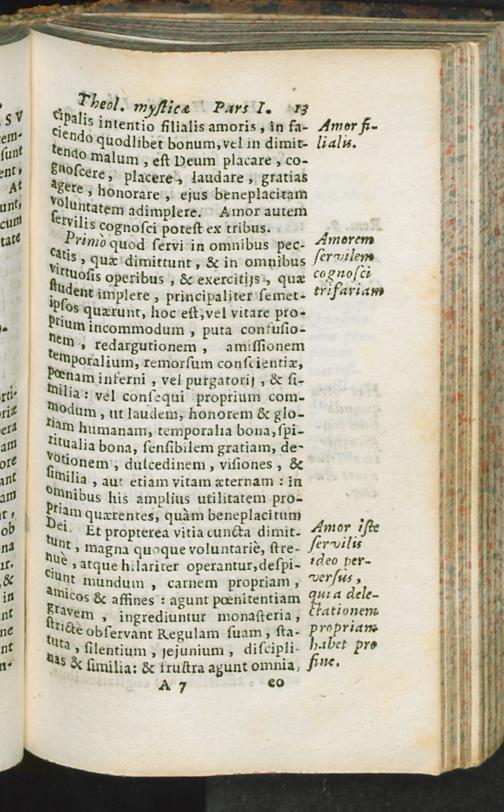 Theol. mysticæ Pars I. 13
cipalis intentio filialis amoris, in fa-
ciendo quodlibet bonum, vel in dimit-
tendo malum, est Deum placare, co-
gnoscere, placere, laudare, gratias
agere, honorare, ejus beneplacitam
voluntatem adimplere. Amor autem
servilis cognosci potest ex tribus.
Primò quod servi in omnibus pec-
catis, quæ dimittunt, & in omnibus
virtuosis operibus, & exercitijs, quæ
student implere, principaliter semet-
ipsos quærunt, hoc est, vel vitare pro-
prium incommodum, puta confusio-
nem, redargutionem, amissionem
temporalium, remorsum conscientiæ,
pœnam inferni, vel purgatorij, & si-
milia: vel consequi proprium com-
modum, ut laudem, honorem & glo-
riam humanam, temporalia bona, spi-
ritualia bona, sensibilem gratiam, de-
votionem, dulcedinem, visiones, &
similia, aut etiam vitam æternam: in
omnibus his amplius utilitatem pro-
priam quærentes, quàm beneplacitum
Dei. Et propterea vitia cuncta dimit-
tunt, magna quoque voluntariè, stre-
nuè, atque hilariter operantur, despi-
ciunt mundum, carnem propriam,
amicos & affines: agunt pœnitentiam
gravem, ingrediuntur monasteria,
strictè observant Regulam suam, sta-
tuta, silentium, jejunium, discipli-
nas & similia: & frustra agunt omnia,
A 7 eo
Amor fi-
lialis.
Amorem
servilem
cognosci
trifariam
Amor iste
servilis
ideo per-
versus,
quia dele-
ctationem
propriam
habet pro
fine.